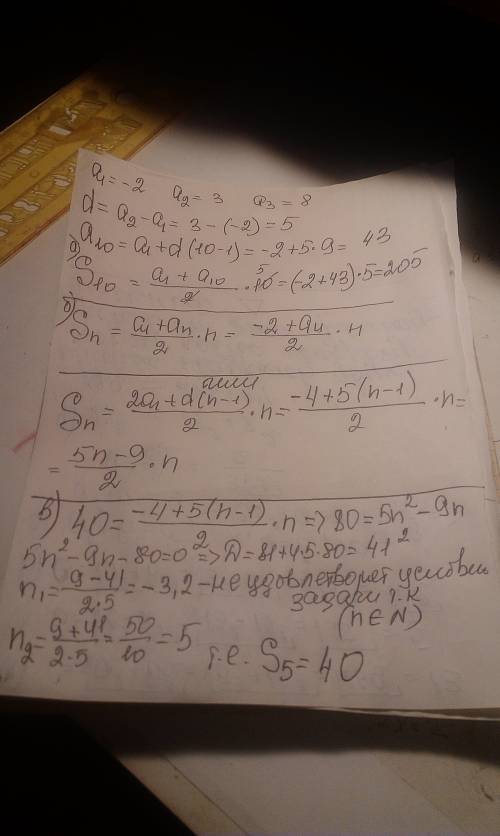 a₁ = -2 a₂ = 3 a₃ = 8
d = a₂ - a₁ = 3 - (-2) = 5
а) a₁₀ = a₁ + d(10-1) = -2 + 5·9 = 43
S₁₀ = (a₁ + a₁₀)/2 · 10 5 = (-2+43)·5 = 205
б) Sₙ = (a₁ + aₙ)/2 · n = (-2 + aₙ)/2 · n
или
Sₙ = (2a₁ + d(n-1))/2 · n = (-4 + 5(n-1))/2 · n =
= (5n - 9)/2 · n
в) 40 = (-4 + 5(n-1))/2 · n => 80 = 5n² - 9n
5n² - 9n - 80 = 0 => D = 81 + 4·5·80 = 41²
n₁ = (9 - 41)/(2·5) = -3,2 - не удовлетворяет условию
задачи т.к
(n ∈ N)
n₂ = (9 + 41)/(2·5) = 50/10 = 5 т.е. S₅ = 40